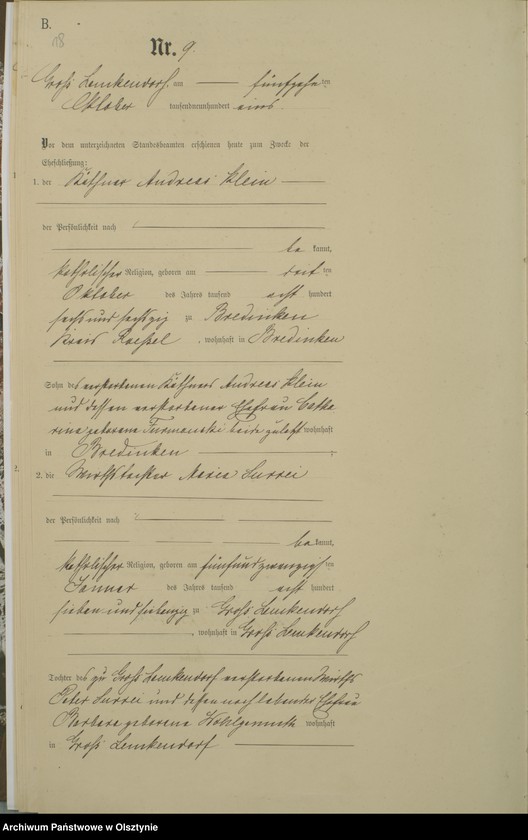 B.
18
Nr. 9.
Groß Lemkendorf am fünfzehnten
Oktober tausendneunhundert eins.
Vor dem unterzeichneten Standesbeamten erschienen heute zum Zwecke der
Eheschließung:
1. der Käthner Andreas Klein
der Persönlichkeit nach
bekannt,
katholischer Religion, geboren am ten
Oktober des Jahres tausend acht hundert
sechs und sechszig zu Bredinken
Kreis Roessel, wohnhaft in Bredinken
Sohn des verstorbenen Käthners Andreas Klein
und dessen verstorbener Ehefrau Catha
rina geborene beide zuletzt wohnhaft
in Bredinken
2. die Wirthstochter Maria
der Persönlichkeit nach
bekannt,
katholischer Religion, geboren am fünfundzwanzigsten
Januar des Jahres tausend acht hundert
sieben und siebenzig zu Groß Lemkendorf
, wohnhaft in Groß Lemkendorf
Tochter des zu Groß Lemkendorf verstorbenen Wirths
Peter und dessen noch lebender Ehefrau
Barbara geborene Wohlgemuth wohnhaft
in Groß Lemkendorf
Archiwum Państwowe w Olsztynie